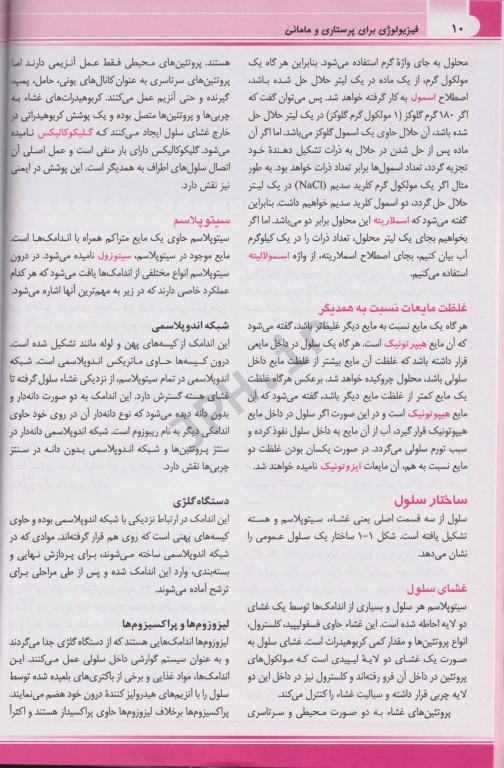 ۱۰ فیزیولوژی برای پرستاری و مامائی
محلول به جای واژهٔ گرم استفاده می‌شود. بنابراین هر گاه یک
مولکول گرم، از یک ماده در یک لیتر حلال حل شده باشد،
اصطلاح اسمول به کار گرفته خواهد شد. پس می‌توان گفت که
اگر ۱۸۰ گرم گلوکز (۱ مولکول گرم گلوکز) در یک لیتر حلال حل
شده باشد، آن حلال حاوی یک اسمول گلوکز می‌باشد. اما اگر آن
ماده پس از حل شدن در حلال به ذرات تشکیل دهندهٔ خود
تجزیه گردد، تعداد اسمول‌ها برابر تعداد ذرات خواهد بود. به طور
مثال اگر یک مولکول گرم کلرید سدیم (NaCl) در یک لیتر
حلال حل گردد، دو اسمول کلرید سدیم خواهیم داشت. بنابراین
گفته می‌شود که اسملاریته این محلول برابر دو می‌باشد. اما اگر
بخواهیم بجای یک لیتر محلول، تعداد ذرات را در یک کیلوگرم
آب بیان کنیم، بجای اصطلاح اسملاریته، از واژه اسمولالیته
استفاده می‌کنیم.
غلظت مایعات نسبت به همدیگر
هر گاه یک مایع نسبت به مایع دیگر غلیظ‌تر باشد، گفته می‌شود
که آن مایع هیپرتونیک است. هر گاه یک سلول در داخل مایعی
قرار داشته باشد که غلظت آن مایع بیشتر از غلظت مایع داخل
سلولی باشد، محلول چروکیده خواهد شد. برعکس هرگاه غلظت
یک مایع کمتر از غلظت مایع دیگر باشد، گفته می‌شود که آن
مایع هیپوتونیک است و در این صورت اگر سلول در داخل مایع
هیپوتونیک قرار گیرد، آب از آن مایع به داخل سلول نفوذ کرده و
سبب تورم سلولی می‌گردد. در صورت یکسان بودن غلظت دو
مایع نسبت به هم، آن مایعات ایزوتونیک نامیده خواهند شد.
ساختار سلول
سلول از سه قسمت اصلی یعنی غشاء، سیتوپلاسم و هسته
تشکیل یافته است. شکل ۱-۱ ساختار یک سلول عمومی را
نشان می‌دهد.
غشای سلول
سیتوپلاسم هر سلول و بسیاری از اندامک‌ها توسط یک غشای
دو لایه احاطه شده است. این غشاء حاوی فسفولیپید، کلسترول،
انواع پروتئین‌ها و مقدار کمی کربوهیدرات است. غشای سلول به
صورت یک غشای دو لایهٔ لیپیدی است که مولکول‌های
پروتئین در داخل آن فرو رفته‌اند و کلسترول نیز در داخل این دو
لایه چربی قرار داشته و سیالیت غشاء را کنترل می‌کند.
پروتئین‌های غشاء به دو صورت محیطی و سرتاسری
هستند. پروتئین‌های محیطی فقط عمل آنزیمی دارند اما
پروتئین‌های سرتاسری به عنوان کانال‌های یونی، حامل، پمپ،
گیرنده و حتی آنزیم عمل می‌کنند. کربوهیدرات‌های غشاء به
چربی‌ها و پروتئین‌ها متصل بوده و یک پوشش کربوهیدراتی در
خارج غشای سلول ایجاد می‌کنند که گلیکوکالیکس نامیده
می‌شود. گلیکوکالیکس دارای بار منفی است و عمل اصلی آن
اتصال سلول‌های اطراف به همدیگر است. این پوشش در ایمنی
نیز نقش دارد.
سیتوپلاسم
سیتوپلاسم حاوی یک مایع متراکم همراه با اندامک‌ها است.
مایع موجود در سیتوپلاسم، سیتوزول نامیده می‌شود. در درون
سیتوپلاسم انواع مختلفی از اندامک‌ها یافت می‌شود که هر کدام
عملکرد خاصی دارند که در زیر به مهم‌ترین آنها اشاره می‌شود.
شبکه اندوپلاسمی
این اندامک از کیسه‌های پهن و لوله مانند تشکیل شده است.
درون کیسه‌ها حاوی ماتریکس اندوپلاسمی است. شبکه
اندوپلاسمی در تمام سیتوپلاسم، از نزدیکی غشاء سلول گرفته تا
غشای هسته گسترش دارد. این اندامک به دو صورت دانه‌دار و
بدون دانه دیده می‌شود که نوع دانه‌دار آن در روی خود حاوی
اندامکی دیگر به نام ریبوزوم است. شبکه اندوپلاسمی دانه‌دار در
سنتز پروتئین‌ها و شبکه اندوپلاسمی بدون دانه در سنتز
چربی‌ها نقش دارد.
دستگاه گلژی
این اندامک در ارتباط نزدیکی با شبکه اندوپلاسمی بوده و حاوی
کیسه‌های پهنی است که روی هم قرار گرفته‌اند. موادی که در
شبکه اندوپلاسمی ساخته می‌شوند، برای پردازش نهایی و
بسته‌بندی، وارد این اندامک شده و پس از طی مراحلی برای
ترشح آماده می‌شوند.
لیزوزوم‌ها و پراکسیزوم‌ها
لیزوزوم‌ها اندامک‌هایی هستند که از دستگاه گلژی جدا می‌گردند
و به عنوان سیستم گوارشی داخل سلولی عمل می‌کنند. این
اندامک‌ها، مواد غذایی و برخی از باکتری‌های بلعیده شده توسط
سلول را با آنزیم‌های هیدرولیز کنندهٔ درون خود هضم می‌نمایند.
پراکسیزوم‌ها برخلاف لیزوزوم‌ها حاوی پراکسیداز هستند و اکثراً